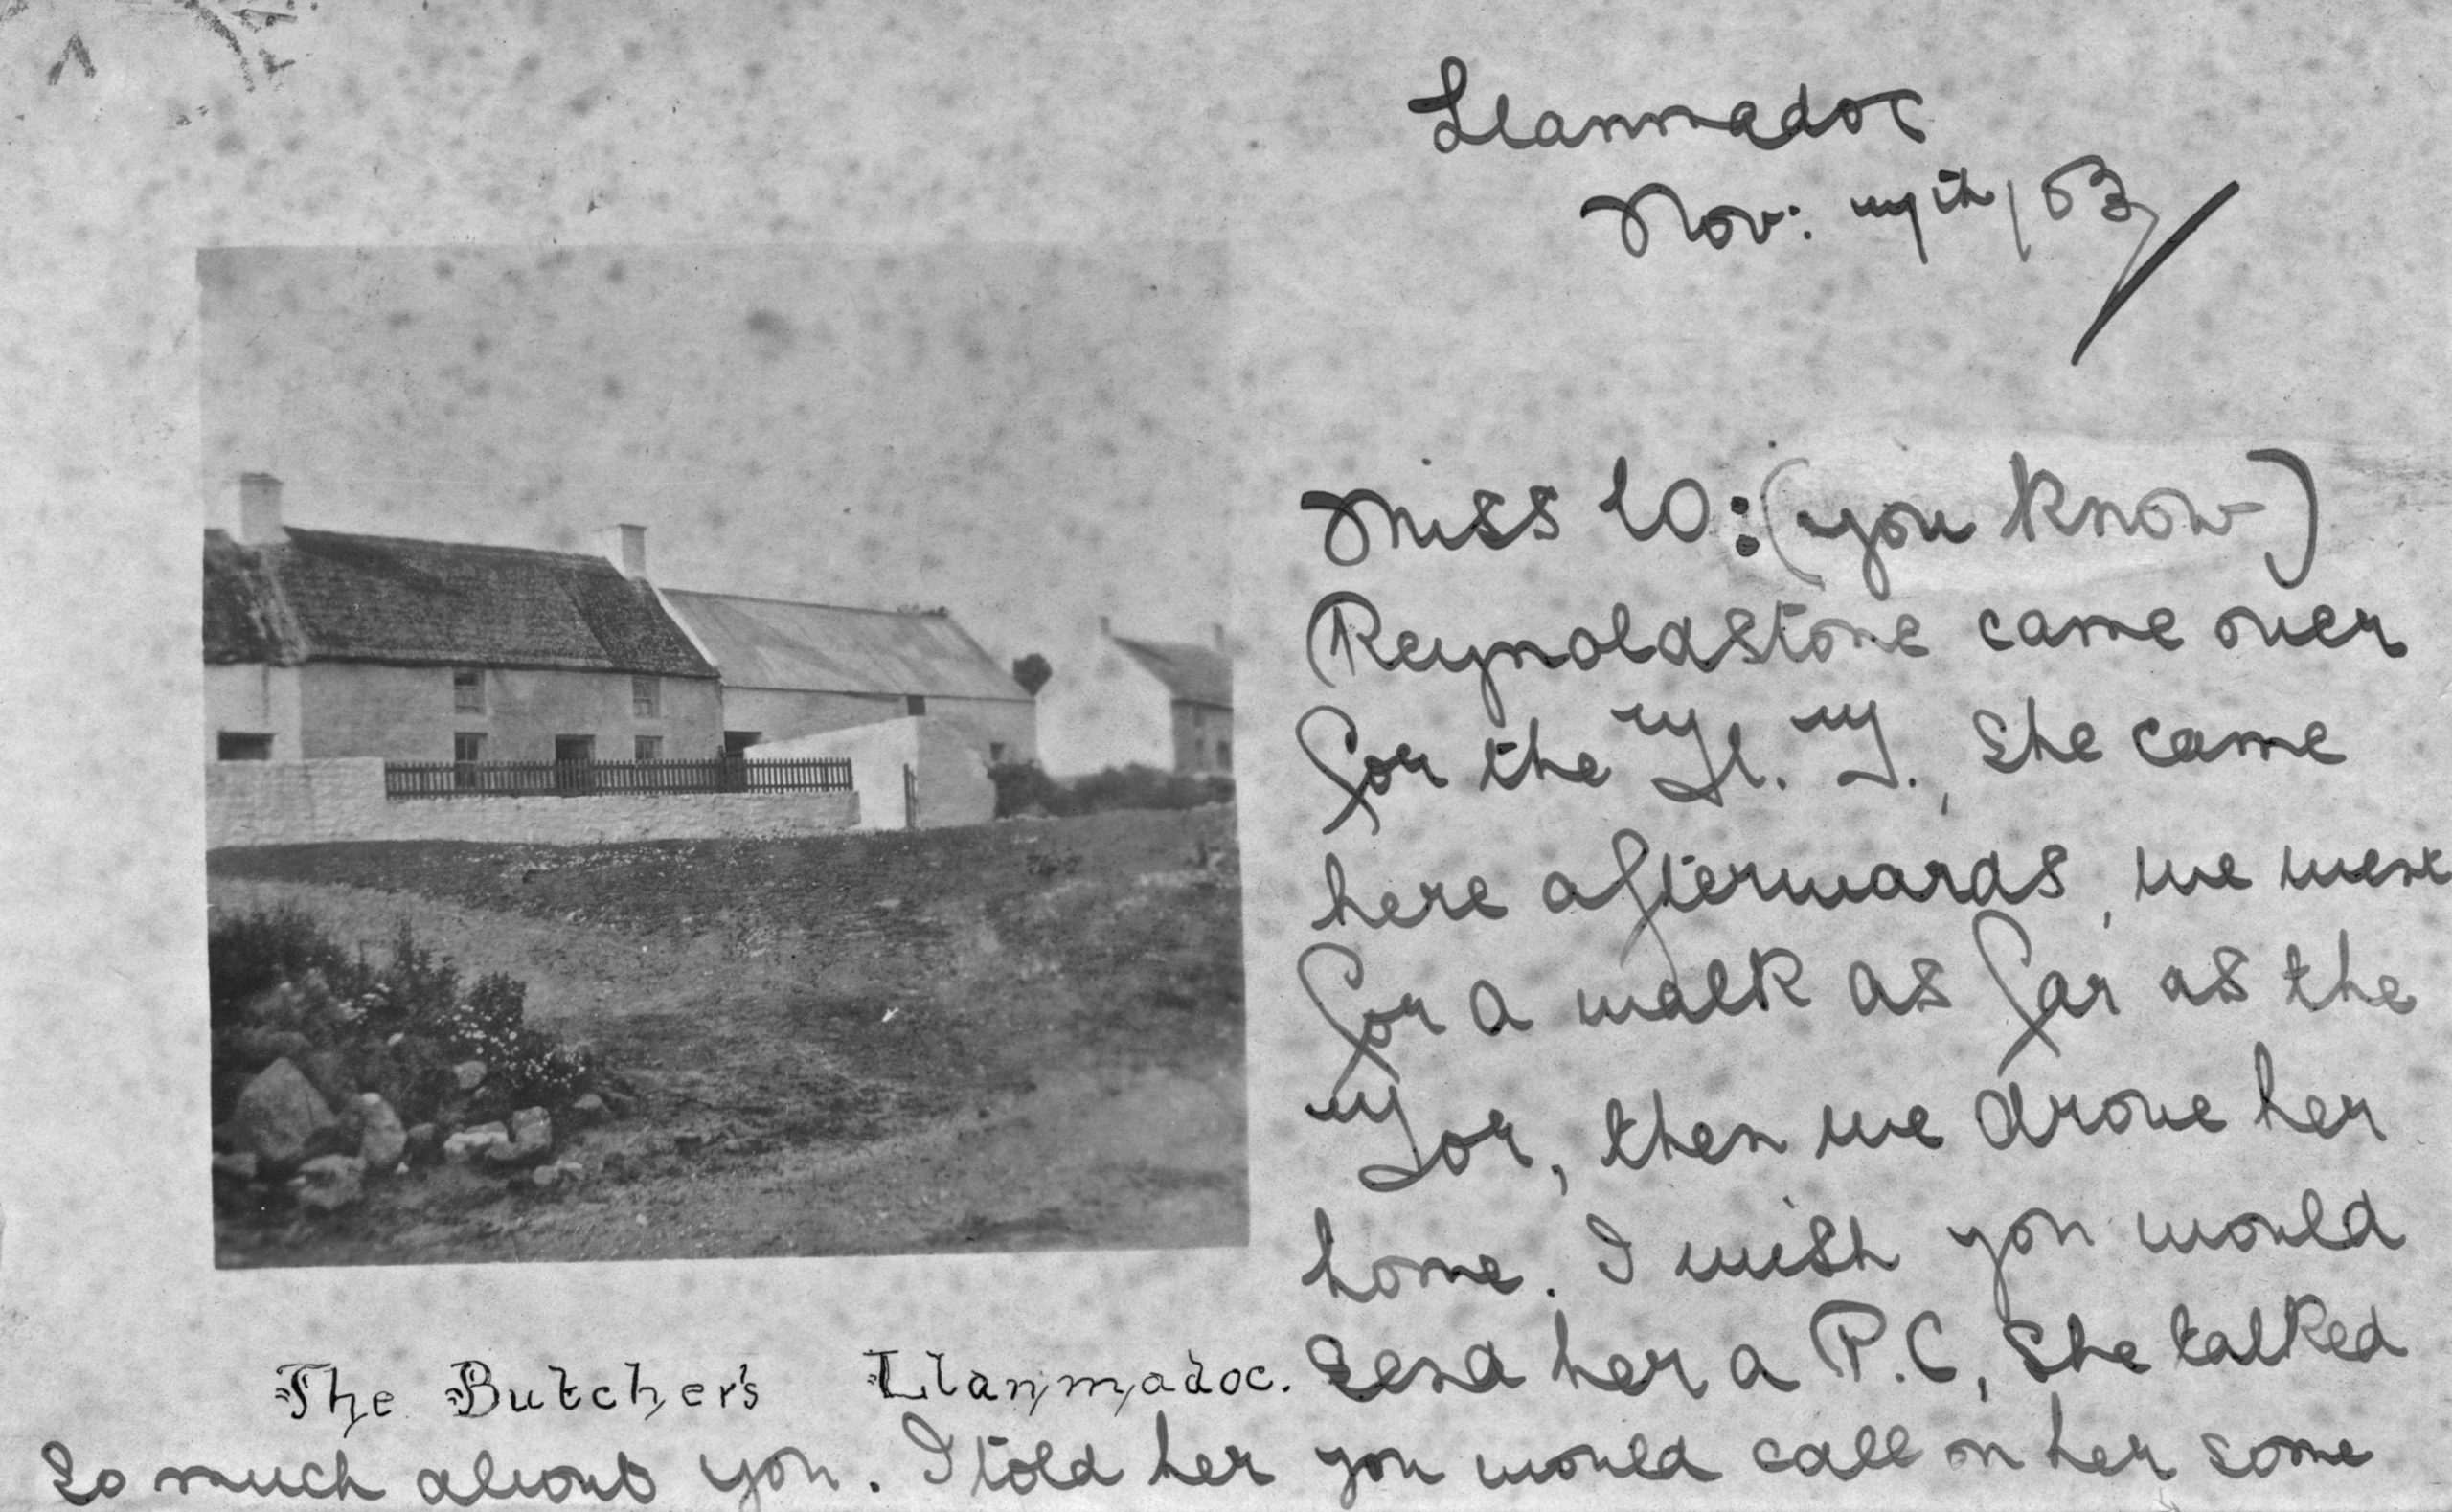 Llanmadoc
Nov:
Miss W: (you know)
Reynoldstone came over
for the H. T., She came
here afterwards, we went
for a walk as far as the
Tor, then we drove her
home. I wish you would
send her a P.C, She talked
The Butcher's Llanmadoc.
so much about you. I told her you would call on her some